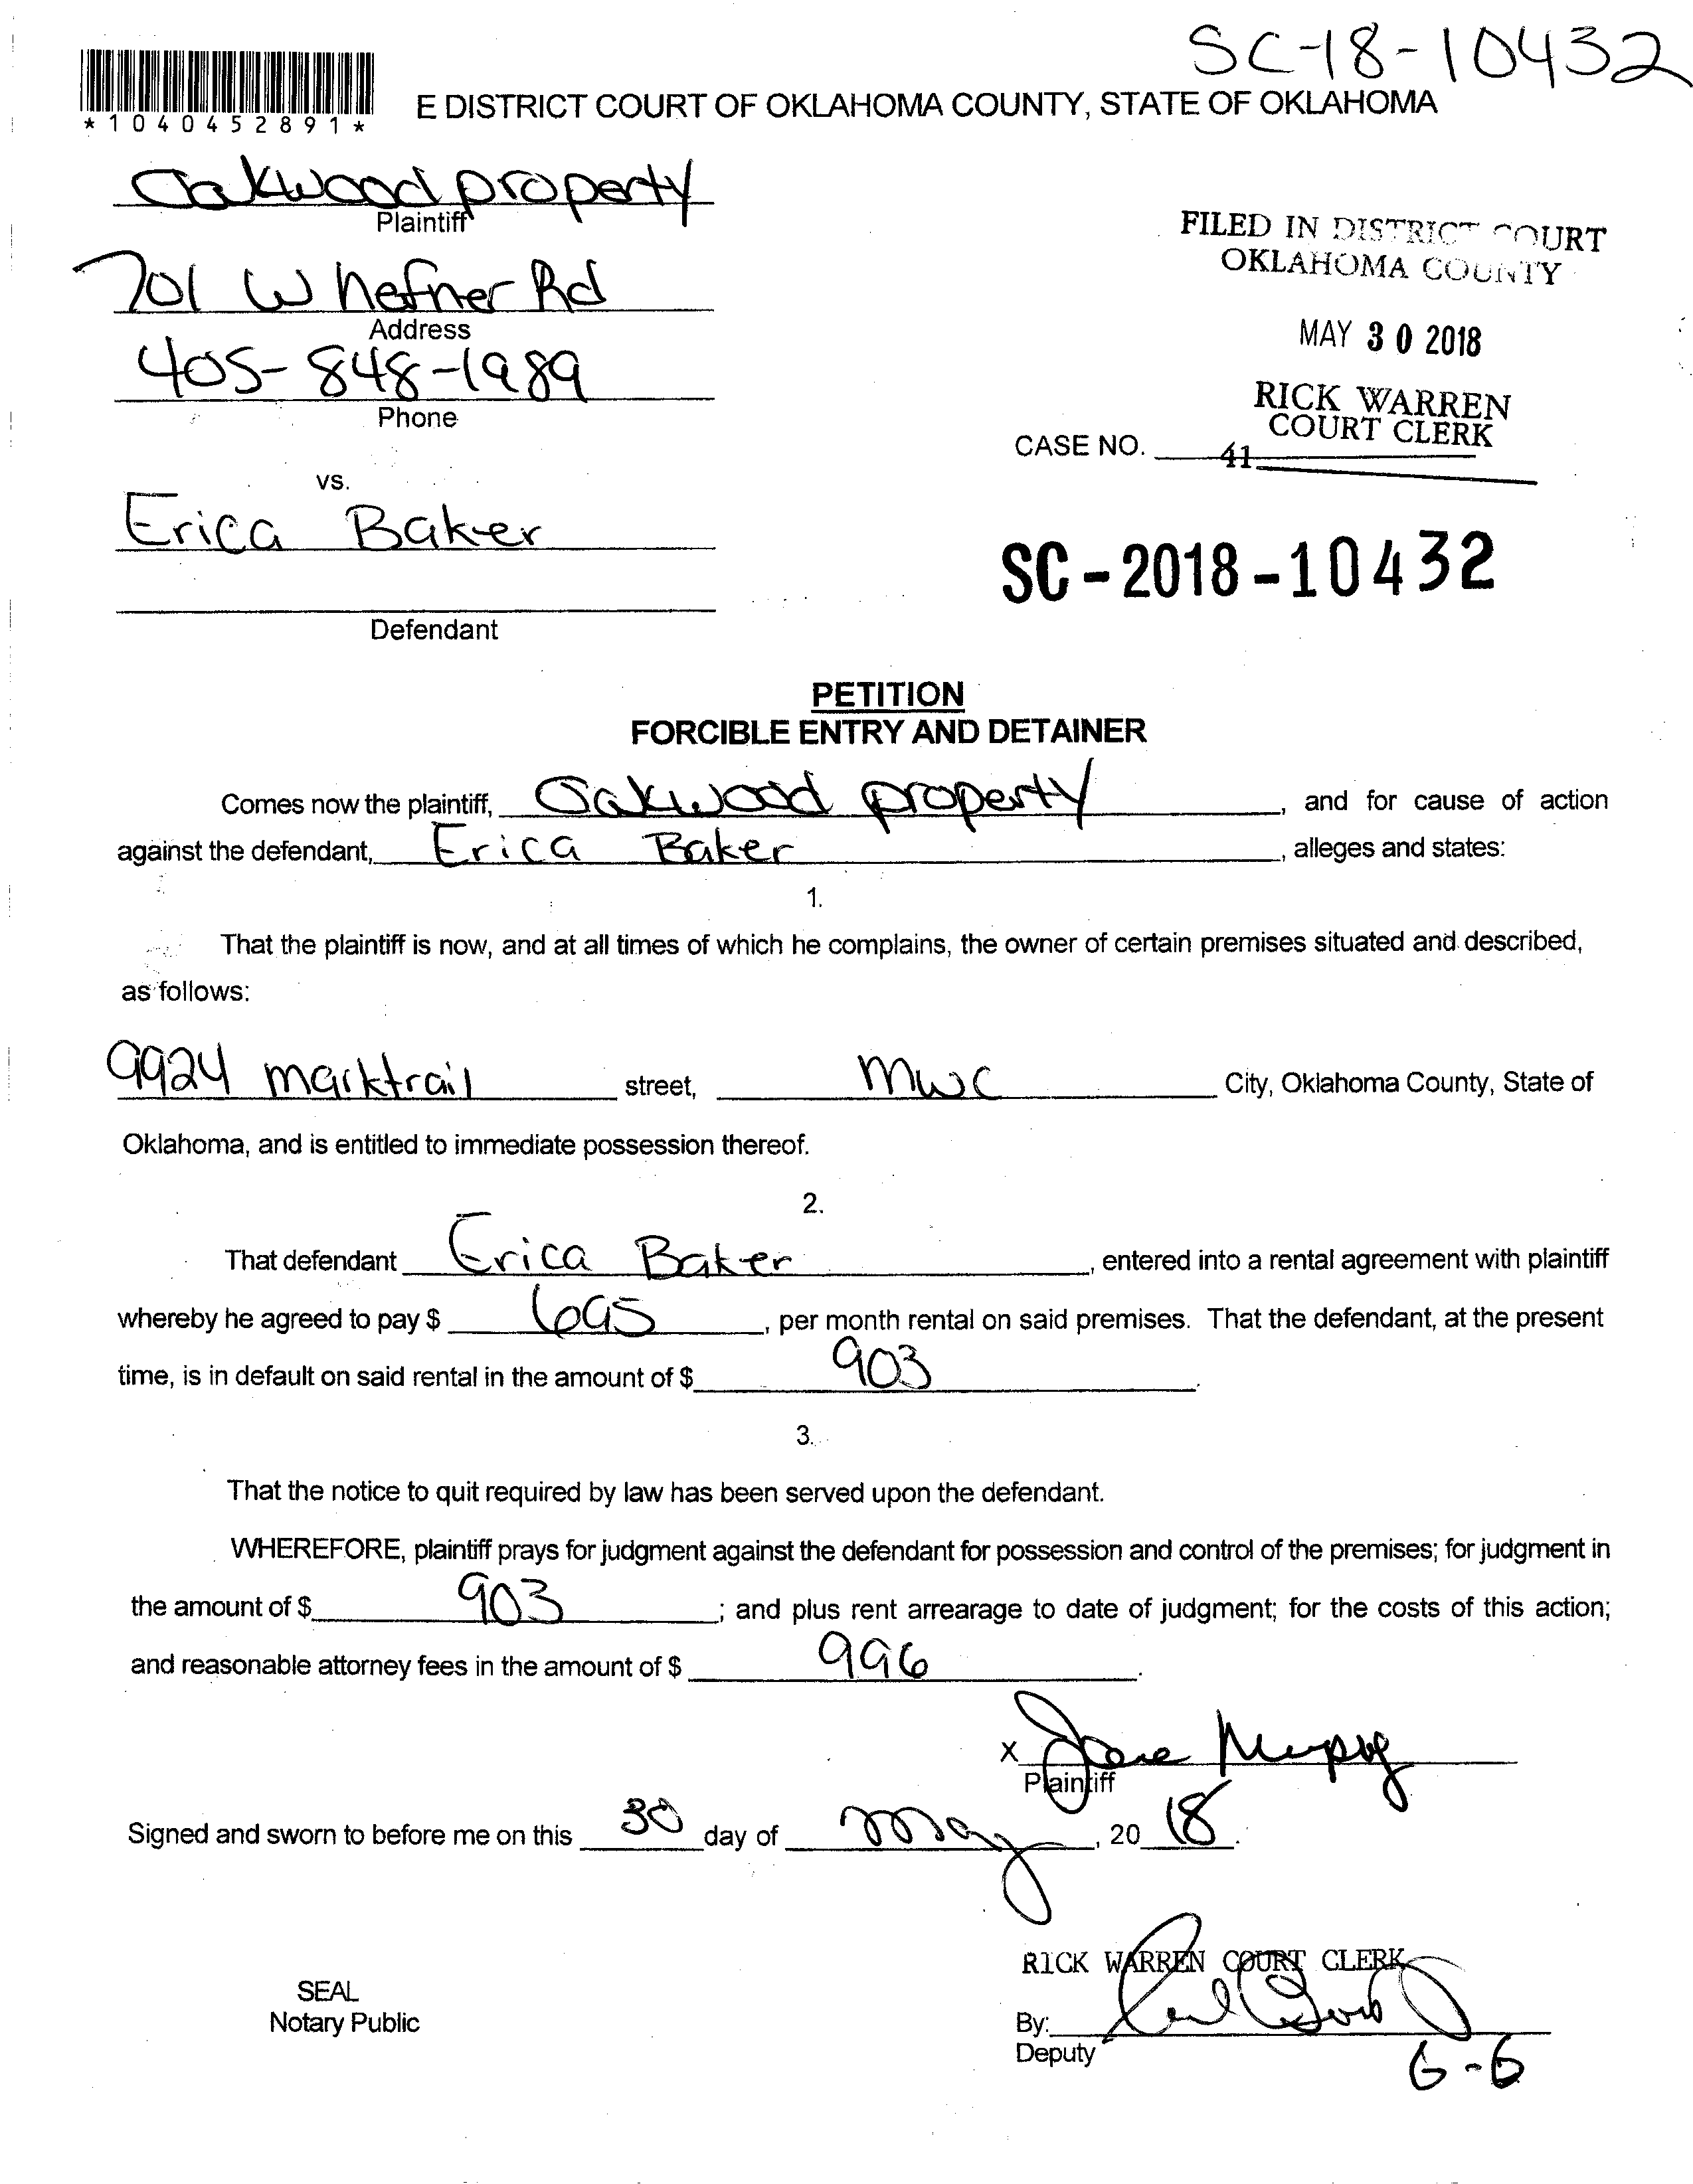 SC-18-10432
*1040452891*
E DISTRICT COURT OF OKLAHOMA COUNTY, STATE OF OKLAHOMA
Oakwood property
Plaintiff
701 W hefner Rd
Address
405-848-1989
Phone
FILED IN DISTRICT COURT
OKLAHOMA COUNTY
MAY 30 2018
RICK WARREN
COURT CLERK
CASE NO.
41
vs.
Erica Baker
SC-2018-10432
Defendant
PETITION
FORCIBLE ENTRY AND DETAINER
Comes now the plaintiff, Oakwood property, and for cause of action
against the defendant, Erica Baker, alleges and states:
1.
That the plaintiff is now, and at all times of which he complains, the owner of certain premises situated and described,
as follows:
9924 marktrail street, mwc City, Oklahoma County, State of
Oklahoma, and is entitled to immediate possession thereof.
2.
That defendant Erica Baker, entered into a rental agreement with plaintiff
whereby he agreed to pay $ 695, per month rental on said premises. That the defendant, at the present
time, is in default on said rental in the amount of $ 903.
3.
That the notice to quit required by law has been served upon the defendant.
WHEREFORE, plaintiff prays for judgment against the defendant for possession and control of the premises; for judgment in
the amount of $ 903; and plus rent arrearage to date of judgment; for the costs of this action;
and reasonable attorney fees in the amount of $ 996.
x
Plaintiff
Signed and sworn to before me on this 30 day of May, 20 18.
RICK WARREN COURT CLERK
SEAL
Notary Public
By:
Deputy
6-6